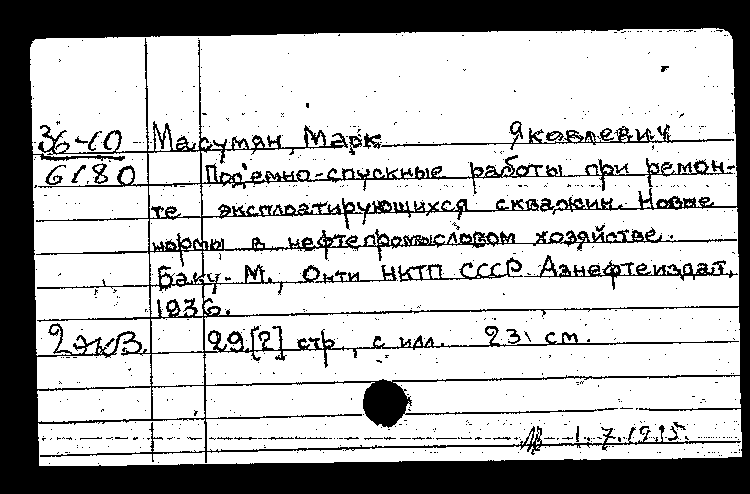 36-10 Масумян, Марк Яковлевич
6180 Под'емно-спускные работы при ремон-
те эксплоатирующихся скважин. Новые
нормы в нефтепромысловом хозяйстве.
Баку - М., Онти НКТП СССР Азнефтеиздат,
1936.
2 экз. 29.[2] стр., с илл. 23 см.